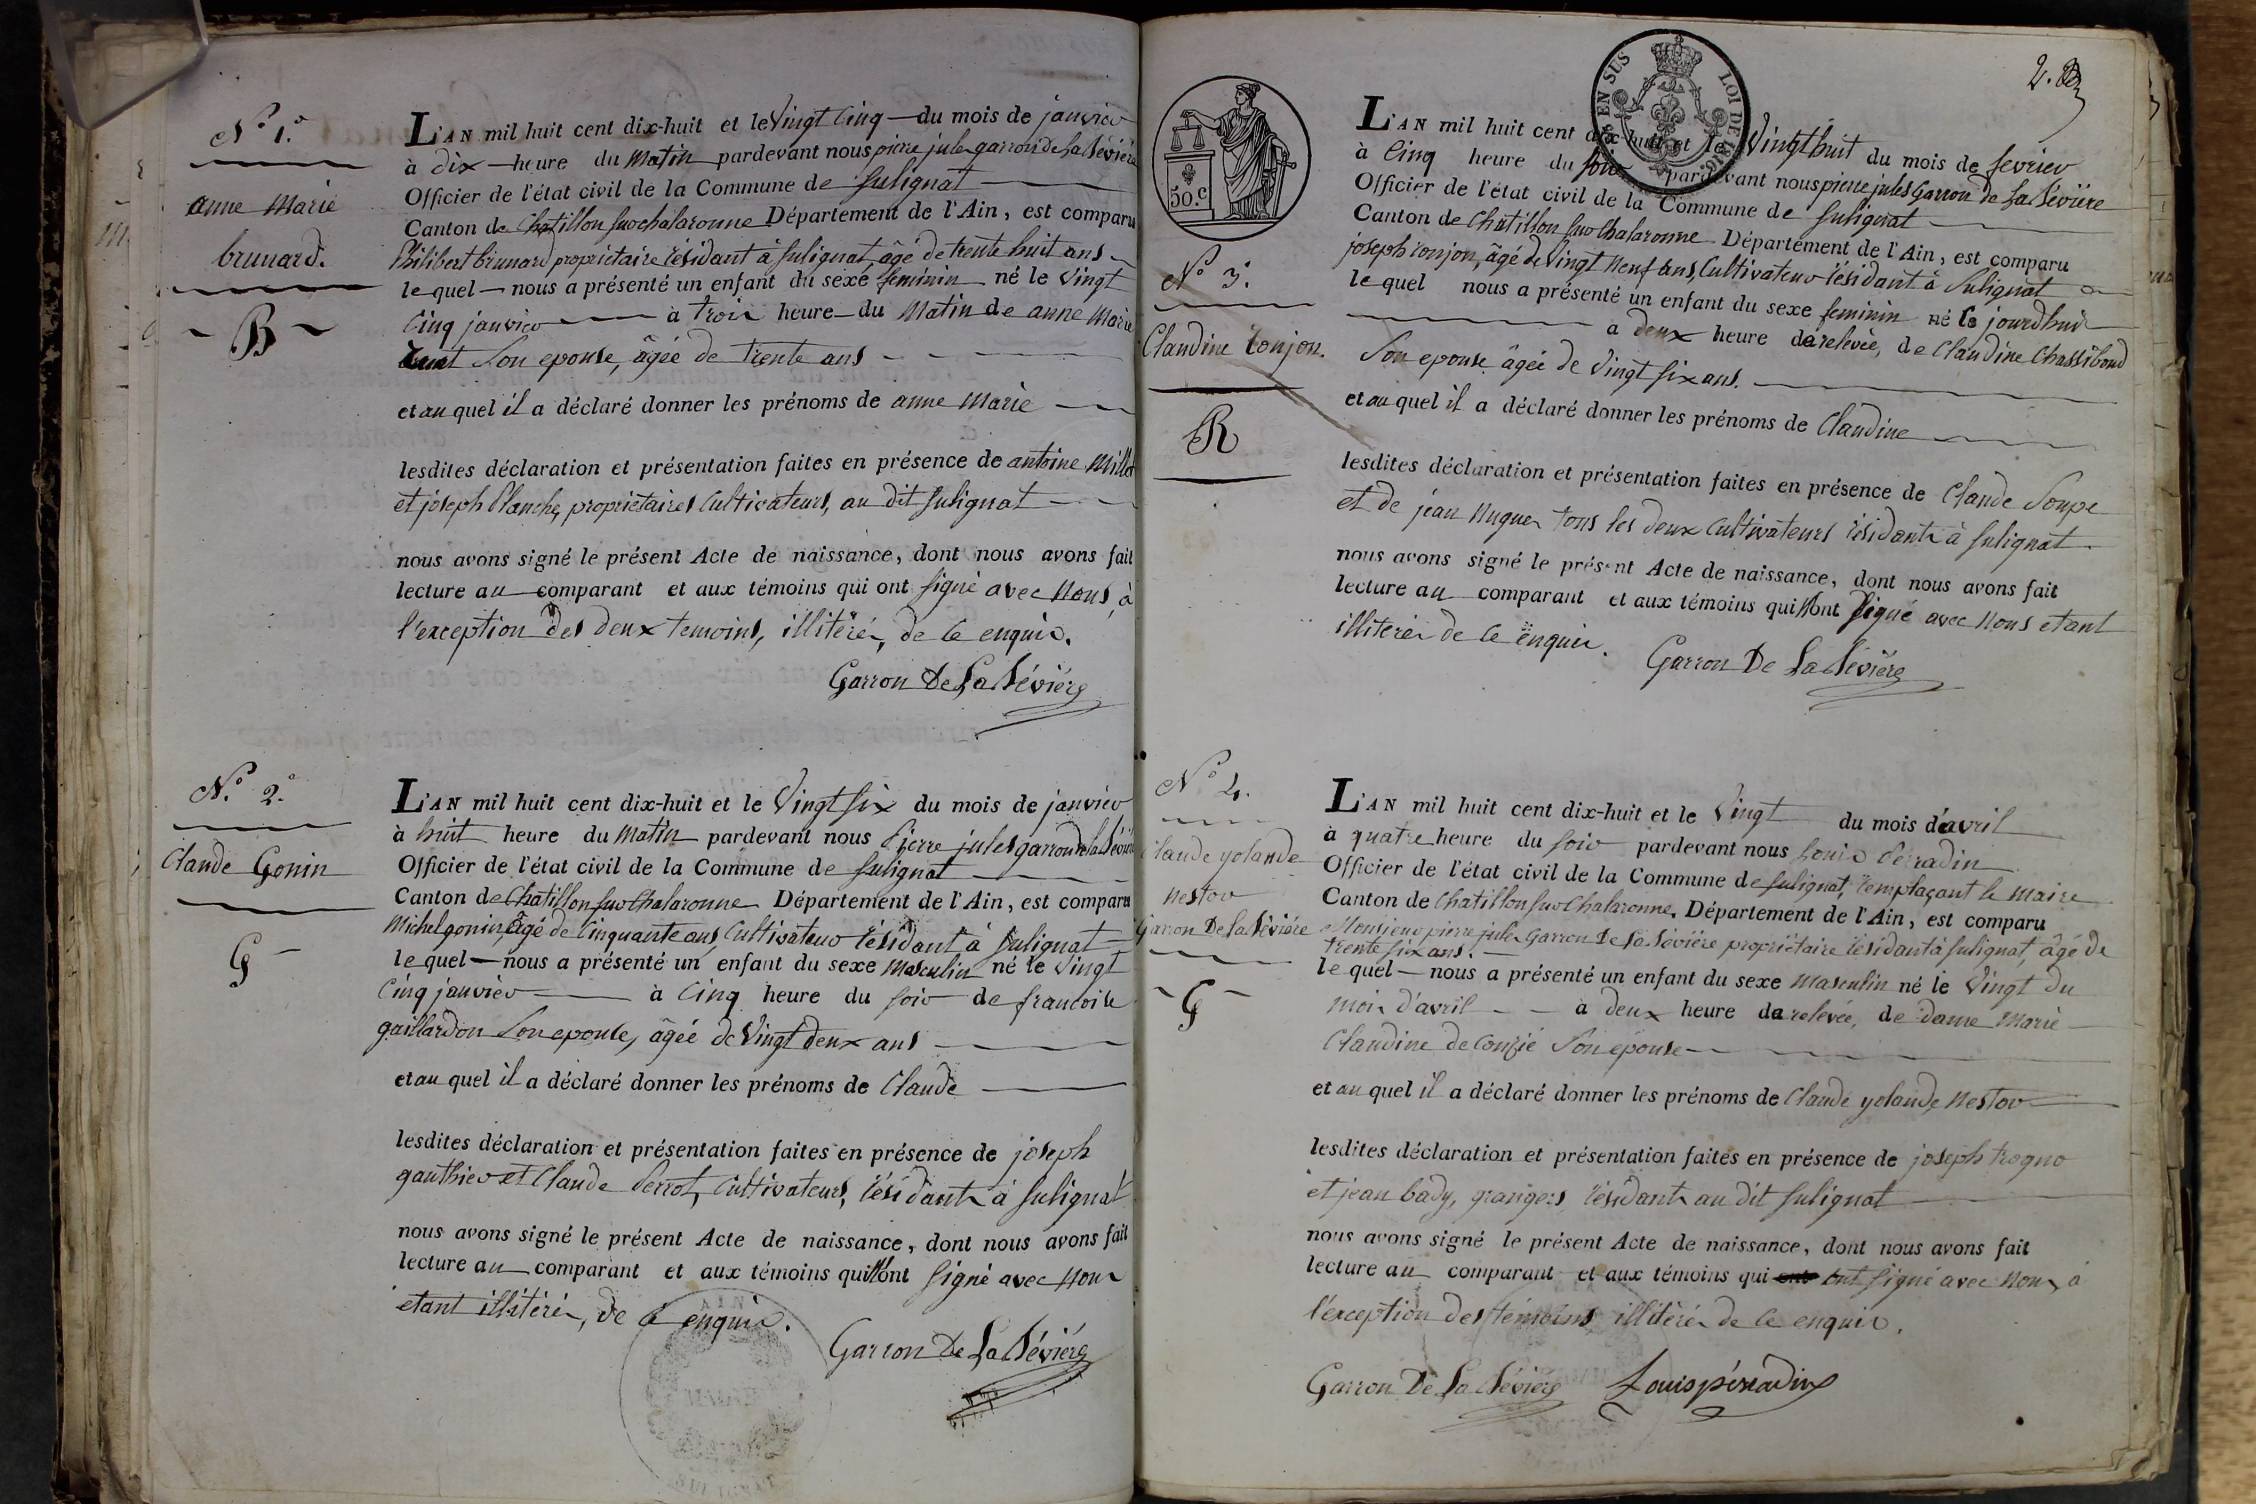 N.º 1.º
anne Marie
brunard.
~ B ~
L'AN mil huit cent dix-huit et le Vingt Cinq du mois de janvier
à dix heure du Matin pardevant nous pierre jules garron de la Sévière
Officier de l'état civil de la Commune de Sulignat
Canton de Chatillon sur chalaronne Département de l'Ain, est comparu
Philibert brunard propriétaire résidant à Sulignat, âgé de trente huit ans
lequel nous a présenté un enfant du sexe feminin né le Vingt
Cinq janvier à trois heure du Matin de anne Marie
son epouse, âgée de trente ans
et au quel il a déclaré donner les prénoms de anne Marie
lesdites déclaration et présentation faites en présence de antoine
et joseph Blanche, propriétaires Cultivateurs, au dit Sulignat
nous avons signé le présent Acte de naissance, dont nous avons fait
lecture au comparant et aux témoins qui ont signé avec Nous, à
l'exception des deux temoins, illitérés, de ce enquis.
Garron De La Sévière
N.º 2.º
Claude Gonin
G
L'AN mil huit cent dix-huit et le Vingt six du mois de janvier
à huit heure du Matin pardevant nous Pierre jules garron de la Sévière
Officier de l'état civil de la Commune de Sulignat
Canton de Chatillon sur Chalaronne Département de l'Ain, est comparu
Michel gonin, âgé de Cinquante ans, Cultivateur résidant à Sulignat
lequel nous a présenté un enfant du sexe Masculin né le Vingt
Cinq janvier à Cinq heure du soir de francoise
gaillardon son epouse, âgée de Vingt deux ans
et au quel il a déclaré donner les prénoms de Claude
lesdites déclaration et présentation faites en présence de joseph
gauthier et Claude Perrot, Cultivateurs, résidants à Sulignat
nous avons signé le présent Acte de naissance, dont nous avons fait
lecture au comparant et aux témoins qui n'ont signé avec Nous
etant illitérés, de ce enquis.
Garron De La Sévière
2.
EN SUS
LOI DE 1816.
50.C
N.º 3.º
Claudine ronjon.
R
L'AN mil huit cent dix-huit et le Vingt huit du mois de fevrier
à Cinq heure du soir pardevant nous pierre jules Garron de La Sévière
Officier de l'état civil de la Commune de Sulignat
Canton de Chatillon sur Chalaronne Département de l'Ain, est comparu
joseph ronjon, âgé de Vingt Neuf ans, Cultivateur résidant à Sulignat
lequel nous a présenté un enfant du sexe feminin né le jourdhui
à deux heure de relevée, de Claudine Chassiboud
son epouse âgée de Vingt six ans.
et au quel il a déclaré donner les prénoms de Claudine
lesdites déclaration et présentation faites en présence de Claude Soupe
et de jean Nugues tous les deux Cultivateurs résidants à Sulignat
nous avons signé le présent Acte de naissance, dont nous avons fait
lecture au comparant et aux témoins qui n'ont signé avec Nous etant
illiterés de ce enquis.
Garron De La Sévière
N.º 4.
Claude yolande
nestor
Garron De la Sévière
~ G ~
L'AN mil huit cent dix-huit et le Vingt du mois d'avril
à quatre heure du soir pardevant nous Louis Perradin
Officier de l'état civil de la Commune de Sulignat, remplaçant le Maire
Canton de Chatillon sur Chalaronne, Département de l'Ain, est comparu
Monsieur pierre jules Garron De La Sévière propriétaire résidant à Sulignat, âgé de
trente six ans.
lequel nous a présenté un enfant du sexe Masculin né le Vingt du
mois d'avril à deux heure de relevée, de dame Marie
Claudine de Conzié son epouse
et au quel il a déclaré donner les prénoms de Claude yolande Nestor
lesdites déclaration et présentation faites en présence de joseph
et jean bady, grangers résidants au dit Sulignat
nous avons signé le présent Acte de naissance, dont nous avons fait
lecture au comparant et aux témoins qui ont ont signé avec Nous, à
l'exception des témoins illitérés de ce enquis.
Garron De La Sévière Louis péradin